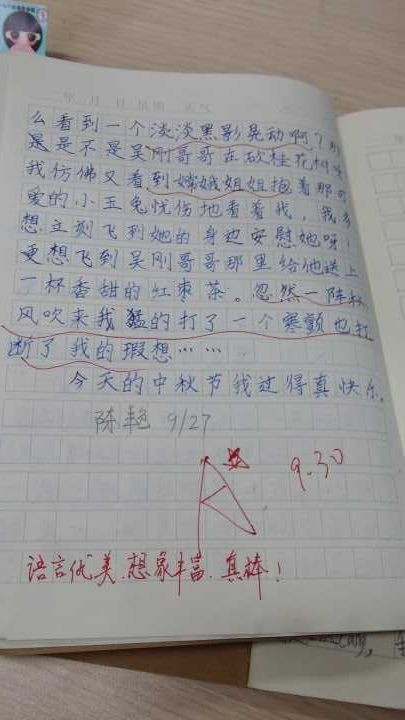 年 月 日 星期 天气
么看到一个淡淡黑影晃动啊？那
是是不是吴刚哥哥在砍桂花树呀
我仿佛又看到嫦娥姐姐抱着那可
爱的小玉兔忧伤地看着我，我多
想立刻飞到她的身边安慰她呀！
更想飞到吴刚哥哥那里给他送上
一杯香甜的红枣茶。忽然一阵秋
风吹来我猛的打了一个寒颤也打
断了我的瑕想……
今天的中秋节我过得真快乐。
陈艳 9/27
9.30
语言优美.想象丰富.真棒！